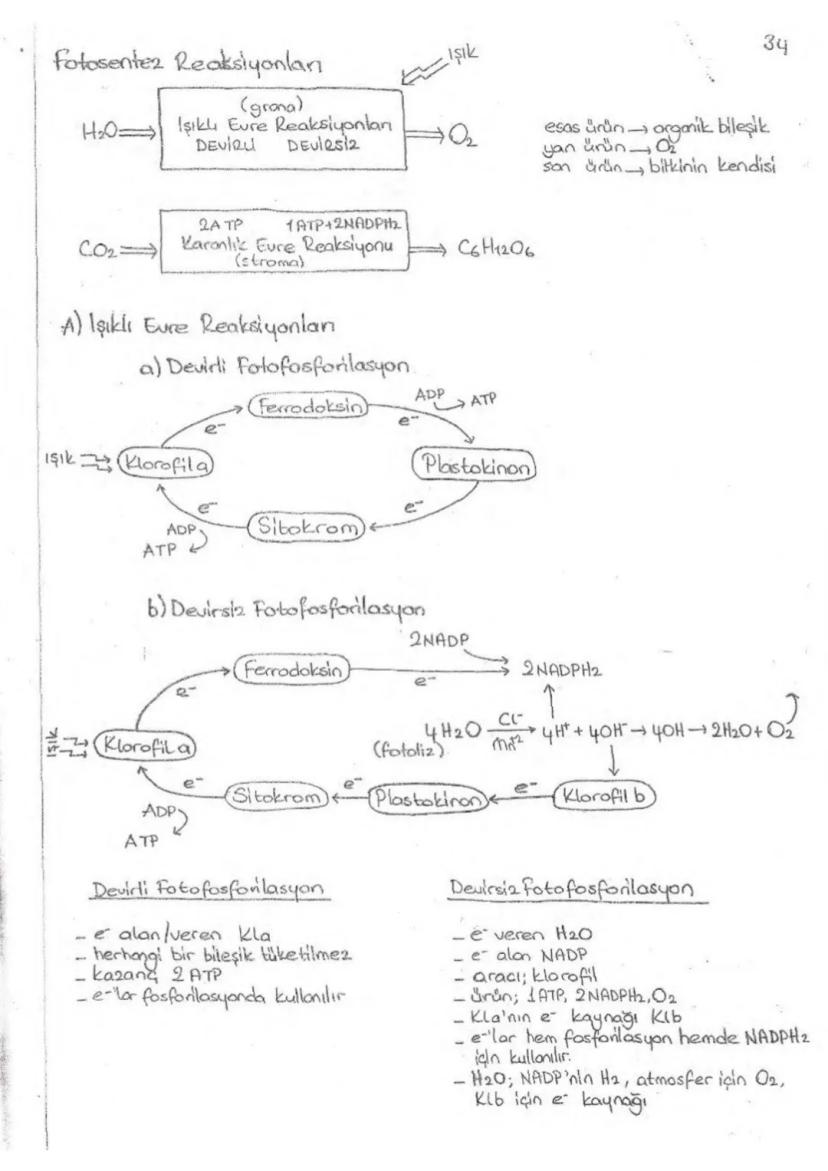 34
Fotosentez Reaksiyonları
ışık
(grana)
H2O ⇒ Işıklı Evre Reaksiyonları ⇒ O2
DEVİRLİ DEVİRSİZ
esas ürün → organik bileşik
yan ürün → O2
son ürün → bitkinin kendisi
2ATP 1ATP+2NADPH2
CO2 ⇒ Karanlık Evre Reaksiyonu ⇒ C6H12O6
(stroma)
A) Işıklı Evre Reaksiyonları
a) Devirli Fotofosforilasyon
Ferrodoksin
ADP → ATP
e- e-
ışık Klorofil a Plastokinon
e- e-
Sitokrom
ADP
ATP
b) Devirsiz Fotofosforilasyon
2NADP
Ferrodoksin 2NADPH2
e- e-
ışık Klorofil a
4H2O Cl- Mn+2 → 4H+ + 4OH- → 4OH → 2H2O + O2
(fotoliz)
e- Sitokrom ← e- Plastokinon ← e- Klorofil b
ADP
ATP
Devirli Fotofosforilasyon
- e- alan/veren Kla
- herhangi bir bileşik tüketilmez
- kazanç 2 ATP
- e-'lar fosforilasyonda kullanılır
Devirsiz Fotofosforilasyon
- e- veren H2O
- e- alan NADP
- aracı; klorofil
- ürün; 1ATP, 2NADPH2, O2
- Kla'nın e- kaynağı Klb
- e-'lar hem fosforilasyon hemde NADPH2
için kullanılır.
- H2O; NADP'nin H2, atmosfer için O2,
Klb için e- kaynağı